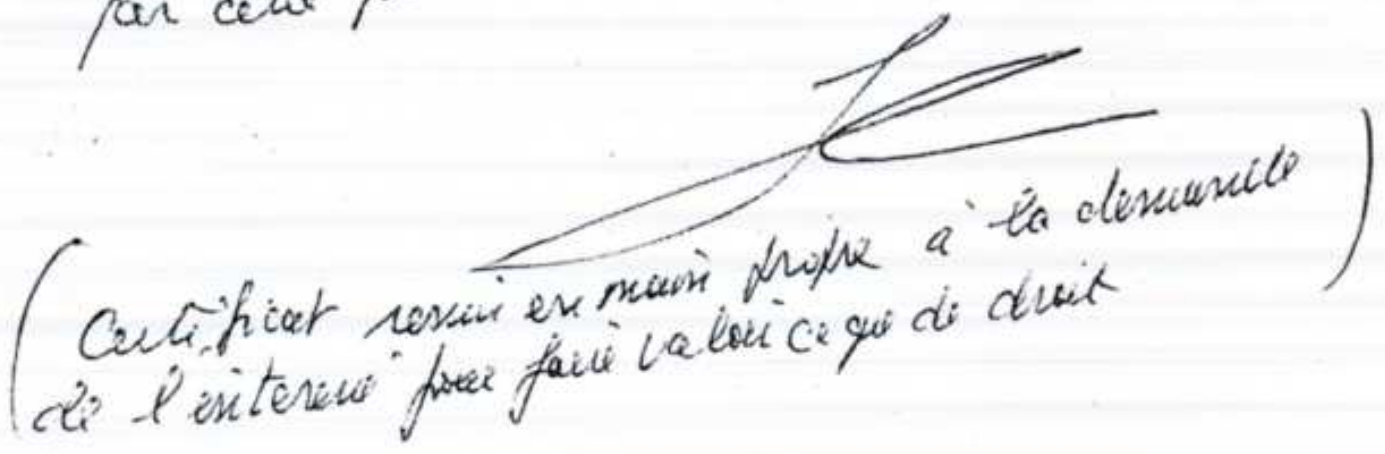 par cette
(Certificat remis en main propre à la demande
de l'intéressé pour faire valoir ce que de droit)